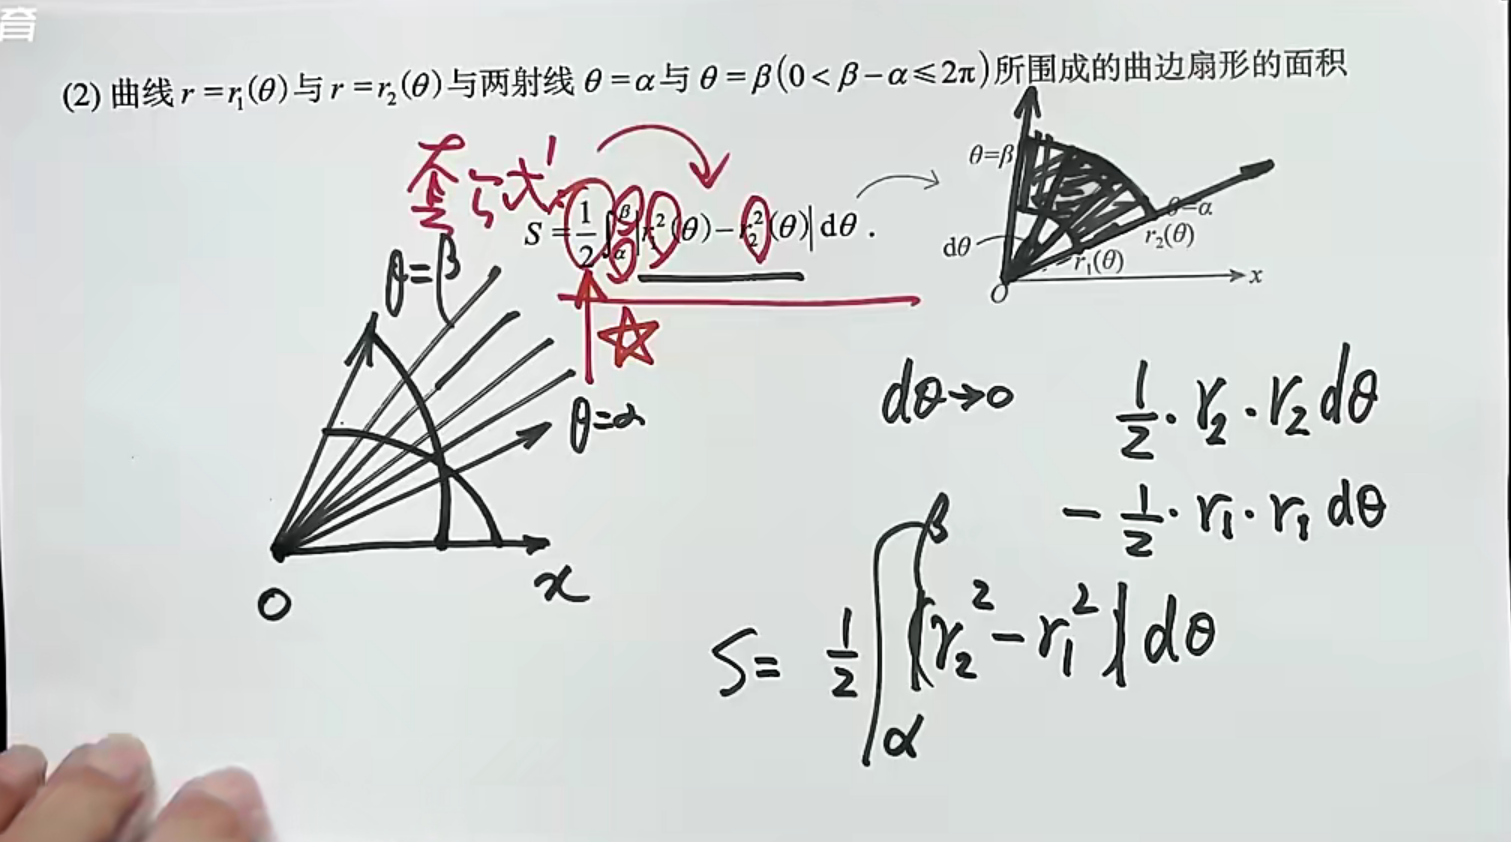 育
(2) 曲线 r = r₁(θ) 与 r = r₂(θ) 与两射线 θ = α 与 θ = β (0 < β − α ⩽ 2π) 所围成的曲边扇形的面积
S = 1/2 ∫_α^β |r₁²(θ) − r₂²(θ)| dθ .
θ=β
θ=α
dθ
r₂(θ)
r₁(θ)
O
x
θ=β
θ=α
O
x
dθ→0
1/2 · r₂ · r₂ dθ
− 1/2 · r₁ · r₁ dθ
S = 1/2 ∫_α^β |r₂² − r₁²| dθ